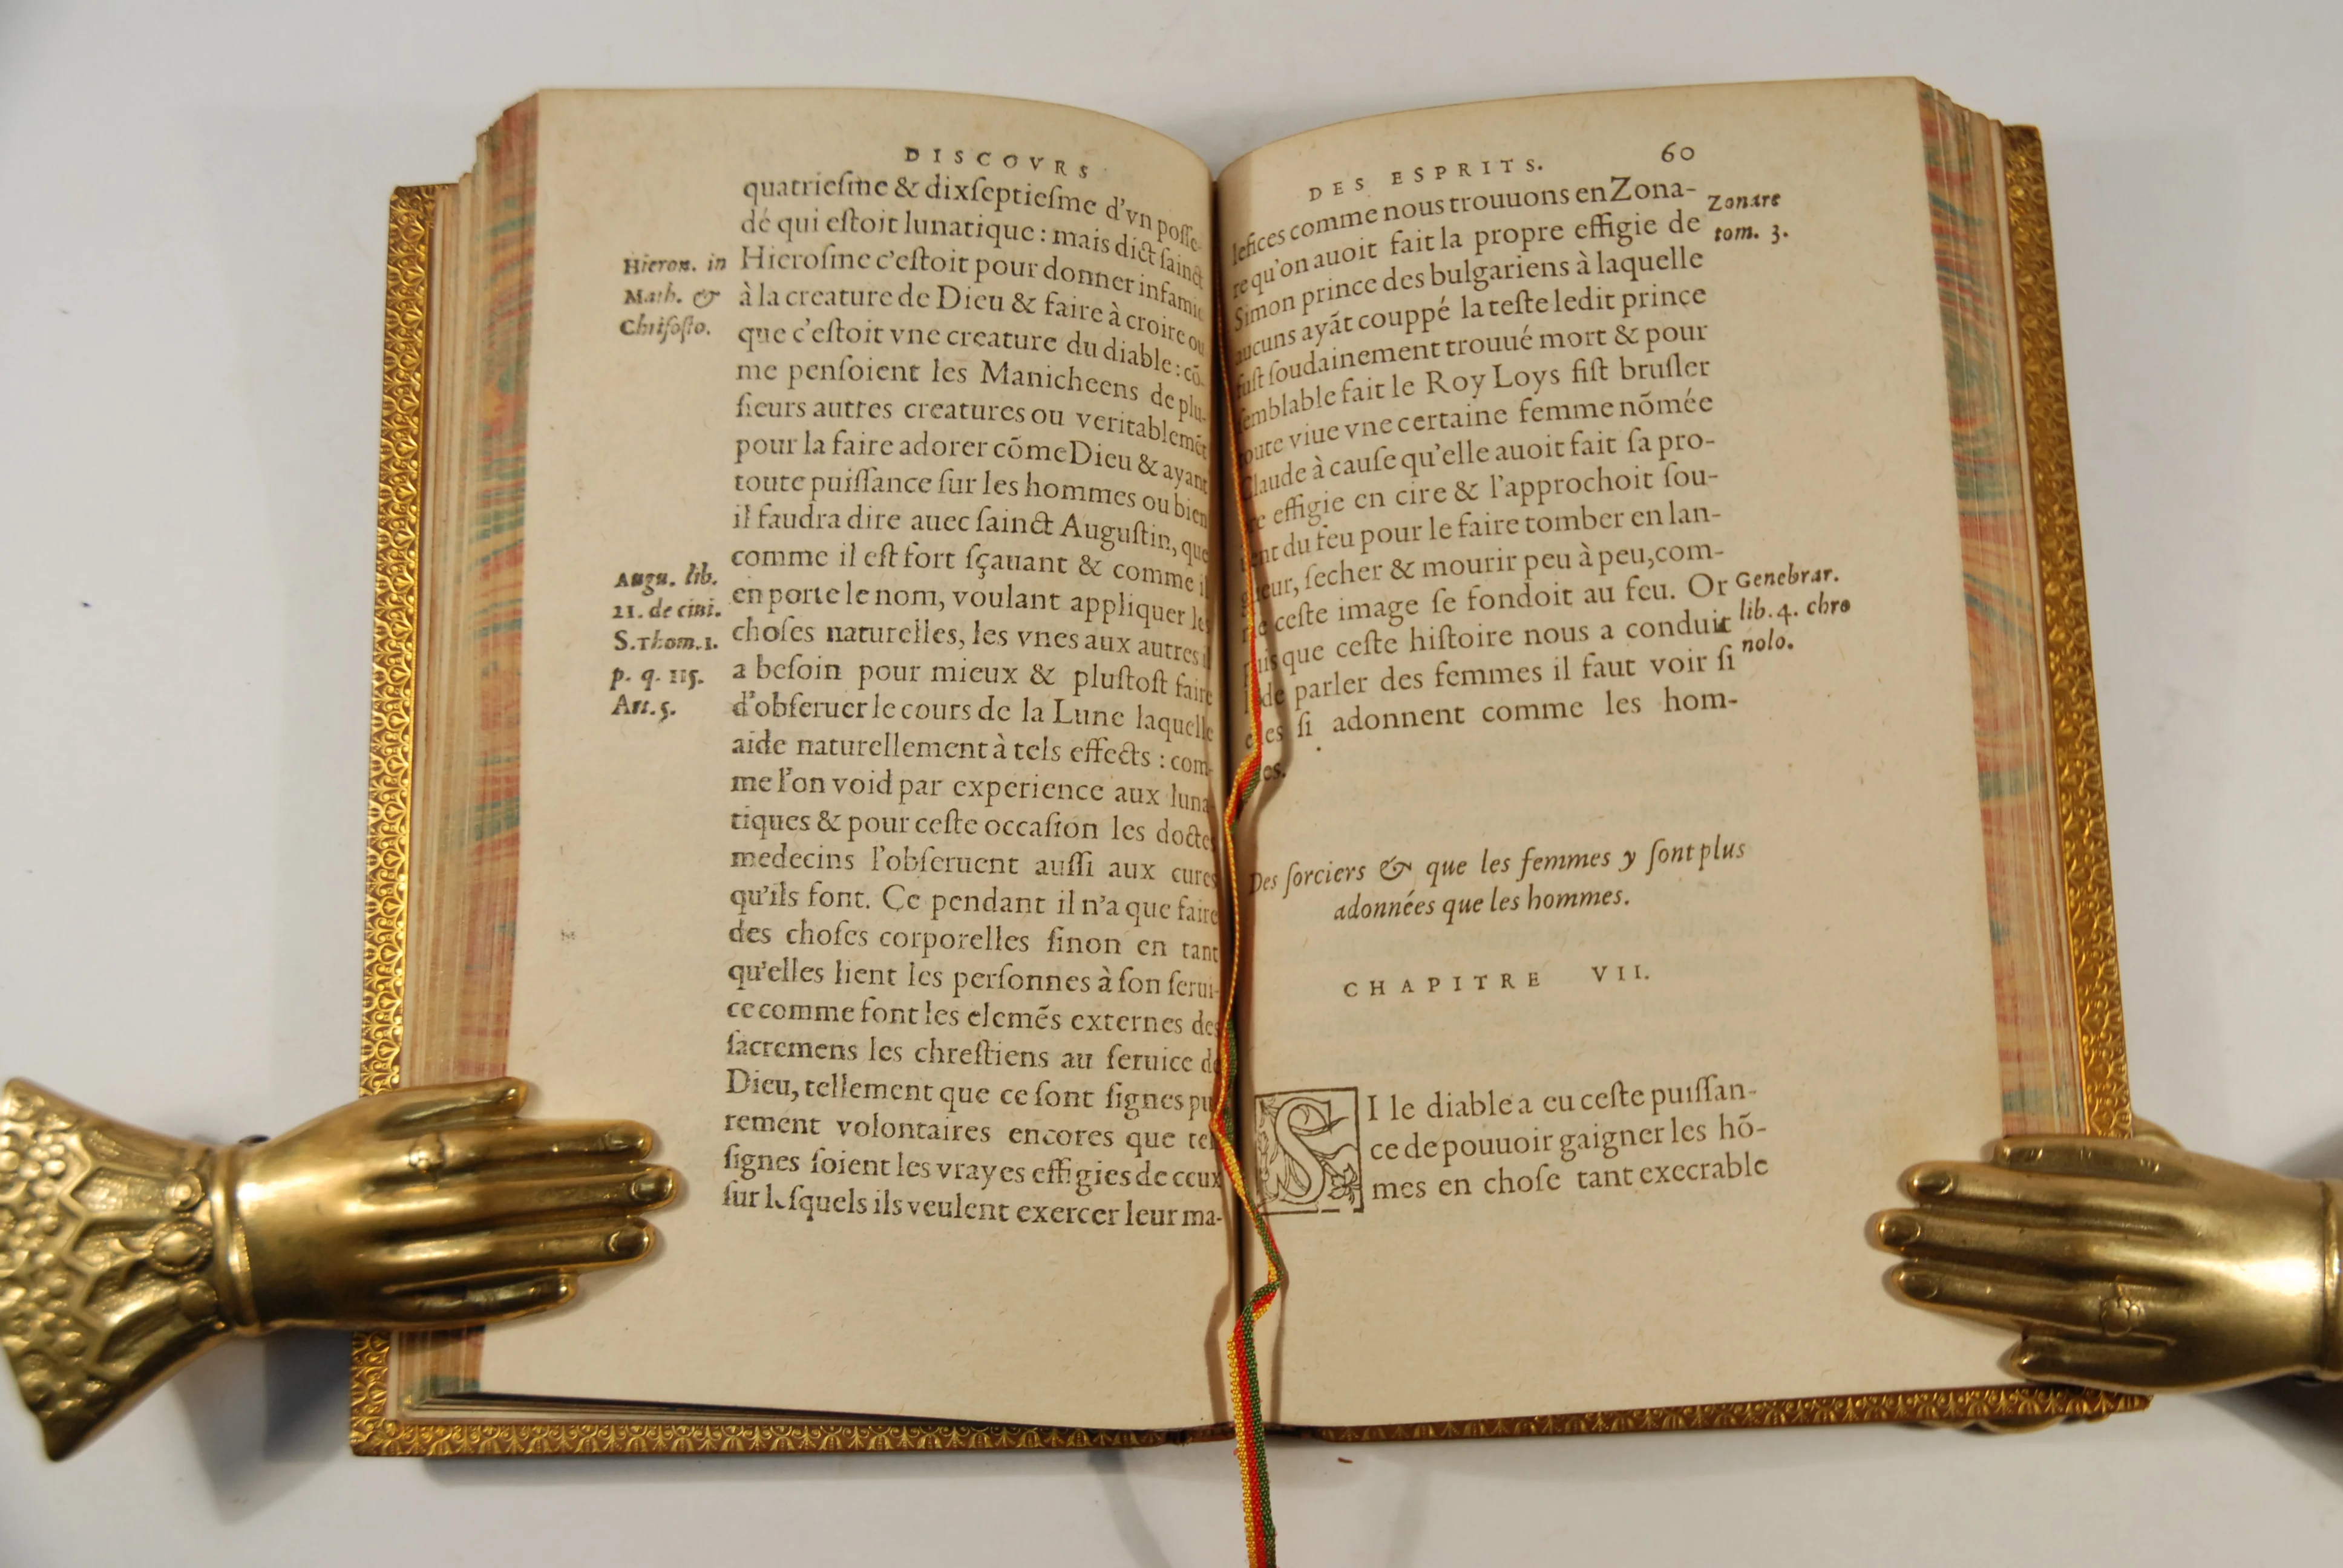 DISCOVRS
quatriesme & dixseptiesme d'vn posse-
dé qui estoit lunatique : mais dict sainct
Hierosme c'estoit pour donner infamie
à la creature de Dieu & faire à croire ou
que c'estoit vne creature du diable : cō-
me pensoient les Manicheens de plu-
sieurs autres creatures ou veritablemēt
pour la faire adorer cōme Dieu & ayant
toute puissance sur les hommes ou bien
il faudra dire auec sainct Augustin, que
comme il est fort sçauant & comme il
en porte le nom, voulant appliquer les
choses naturelles, les vnes aux autres il
a besoin pour mieux & plustost faire
d'obseruer le cours de la Lune laquelle
aide naturellement à tels effects : com-
me l'on void par experience aux luna-
tiques & pour ceste occasion les doctes
medecins l'obseruent aussi aux cures
qu'ils font. Ce pendant il n'a que faire
des choses corporelles sinon en tant
qu'elles lient les personnes à son serui-
ce comme font les elemēs externes des
sacremens les chrestiens au seruice de
Dieu, tellement que ce sont signes pu
rement volontaires encores que tels
signes soient les vrayes effigies de ceux
sur lesquels ils veulent exercer leur ma-
Hieron. in
Math. &
Chrisosto.
Augu. lib.
21. de ciui.
S.Thom.1.
p. q. 115.
Art. 5.
DES ESPRITS. 60
lefices comme nous trouuons en Zona-
re qu'on auoit fait la propre effigie de
Simon prince des bulgariens à laquelle
aucuns ayāt couppé la teste ledit prince
fust soudainement trouué mort & pour
semblable fait le Roy Loys fist brusler
toute viue vne certaine femme nōmée
Claude à cause qu'elle auoit fait sa pro-
re effigie en cire & l'approchoit sou-
uent du feu pour le faire tomber en lan-
gueur, secher & mourir peu à peu, com-
me ceste image se fondoit au feu. Or
puis que ceste histoire nous a conduit
de parler des femmes il faut voir si
elles si adonnent comme les hom-
es.
Zonare
tom. 3.
Genebrar.
lib. 4. chro
nolo.
Des sorciers & que les femmes y sont plus
adonnées que les hommes.
CHAPITRE VII.
SI le diable a eu ceste puissan-
ce de pouuoir gaigner les hō-
mes en chose tant execrable